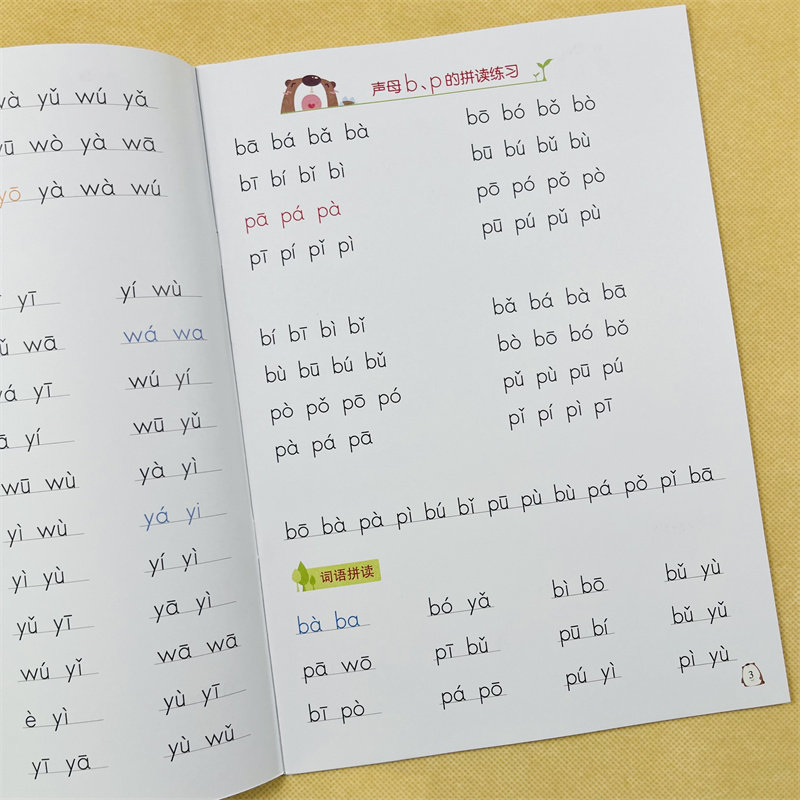 wà yǔ wú yǎ
wò yà wā
yō yà wà wú
yī
yí wù
wā
wá wa
yī
wú yí
yí
wū yǔ
wū wù
yà yì
yì wù
yá yi
yì yù
yí yì
yǔ yī
yā yì
wú yǐ
wā wā
è yì
yù yī
yī yā
yù wǔ
声母b、p的拼读练习
bā bá bǎ bà
bī bí bǐ bì
pā pá pà
pī pí pǐ pì
bō bó bǒ bò
bū bú bǔ bù
pō pó pǒ pò
pū pú pǔ pù
bí bī bì bǐ
bù bū bú bǔ
pò pǒ pō pó
pà pá pā
bǎ bá bà bā
bò bō bó bǒ
pǔ pù pū pú
pǐ pí pì pī
bō bà pà pì bú bǐ pū pù bù pá pǒ pǐ bā
词语拼读
bà ba bó yǎ bì bō bǔ yù
pā wō pī bǔ pū bí bǔ yǔ
bī pò pá pō pú yì pì yù
3